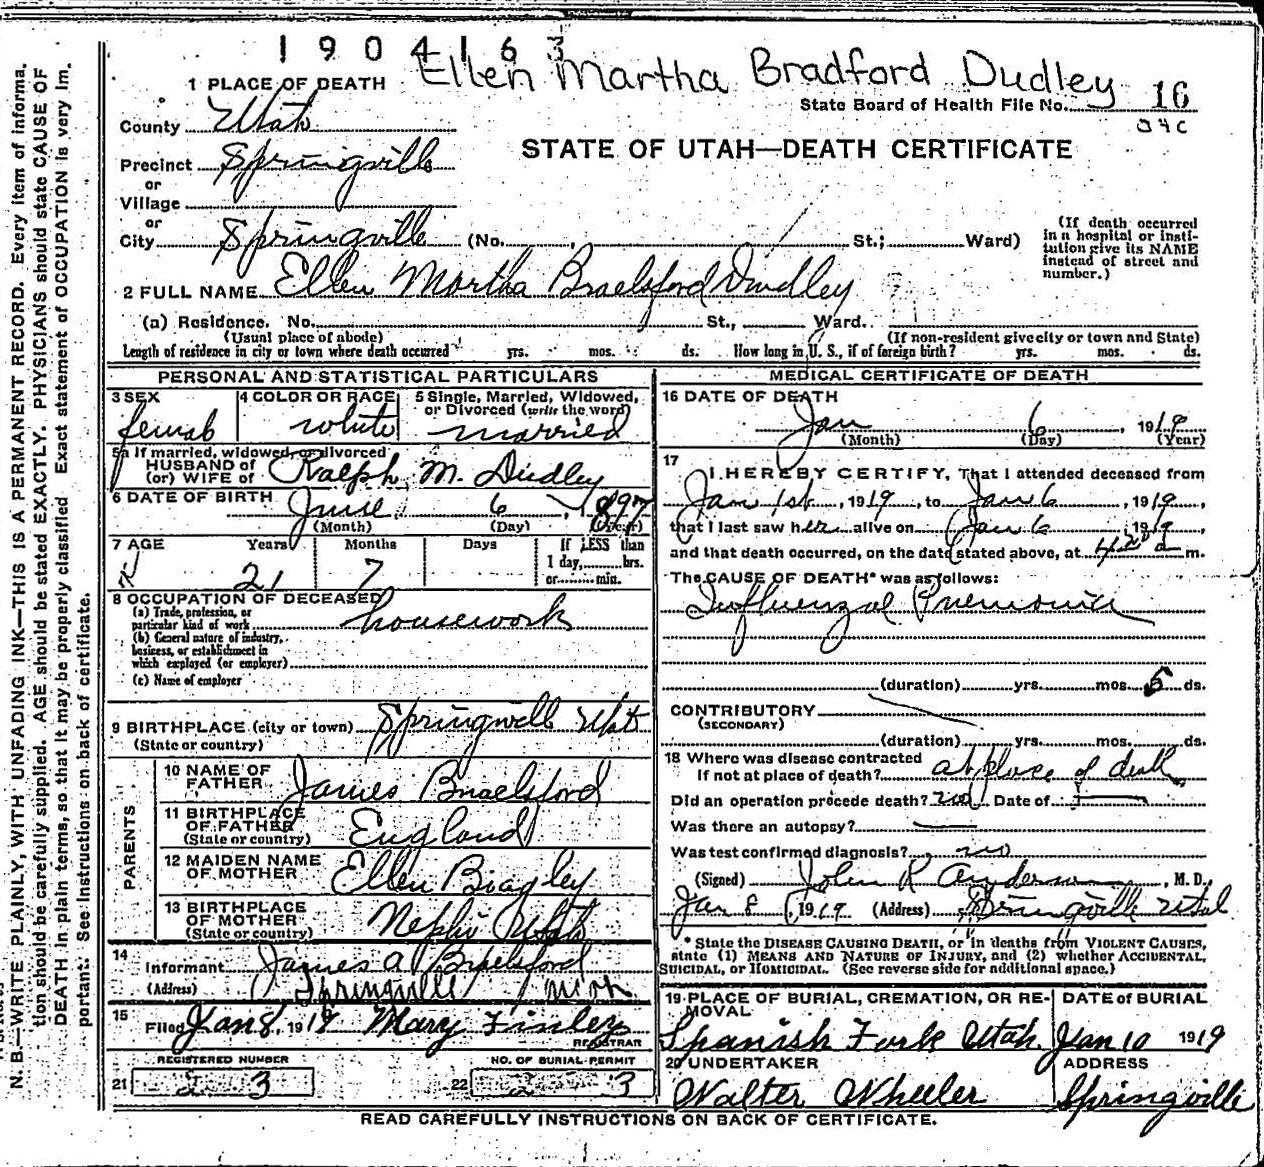 1904163
Ellen Martha Bradford Dudley
1 PLACE OF DEATH
State Board of Health File No. 16
County Utah
STATE OF UTAH—DEATH CERTIFICATE
Precinct Springville
or
Village
or
City Springville (No. , St.; Ward)
(If death occurred in a hospital or institution give its NAME instead of street and number.)
2 FULL NAME Ellen Martha Braelsford Dudley
(a) Residence. No. St., Ward.
(Usual place of abode) (If non-resident give city or town and State)
Length of residence in city or town where death occurred yrs. mos. ds. How long in U. S., if of foreign birth? yrs. mos. ds.
PERSONAL AND STATISTICAL PARTICULARS
3 SEX female
4 COLOR OR RACE white
5 Single, Married, Widowed, or Divorced (write the word) married
5a If married, widowed, or divorced
HUSBAND of
(or) WIFE of Ralph M. Dudley
6 DATE OF BIRTH June 6, 1897
(Month) (Day) (Year)
7 AGE Years Months Days If LESS than
1 day, hrs.
or min.
21 7
8 OCCUPATION OF DECEASED
(a) Trade, profession, or particular kind of work housework
(b) General nature of industry, business, or establishment in which employed (or employer)
(c) Name of employer
9 BIRTHPLACE (city or town) Springville Utah
(State or country)
PARENTS
10 NAME OF FATHER James Braelsford
11 BIRTHPLACE OF FATHER (State or country) England
12 MAIDEN NAME OF MOTHER Ellen
13 BIRTHPLACE OF MOTHER (State or country) Nephi Utah
14 Informant James A Braelsford
(Address) Springville
15 Filed Jan 8, 1919 Mary Finley
REGISTRAR
REGISTERED NUMBER
21 3
NO. OF BURIAL PERMIT
22 3
MEDICAL CERTIFICATE OF DEATH
16 DATE OF DEATH
Jan 6, 1919
(Month) (Day) (Year)
17 I HEREBY CERTIFY, That I attended deceased from
Jan 1st, 1919, to Jan 6, 1919,
that I last saw her alive on Jan 6, 1919,
and that death occurred, on the date stated above, at m.
The CAUSE OF DEATH* was as follows:
Influenzal Pneumonia
(duration) yrs. mos. 5 ds.
CONTRIBUTORY
(SECONDARY)
(duration) yrs. mos. ds.
18 Where was disease contracted
if not at place of death? at place of death
Did an operation precede death? no Date of
Was there an autopsy?
Was test confirmed diagnosis? no
(Signed) John R Anderson, M. D.,
Jan 8, 1919 (Address) Springville Utah
* State the DISEASE CAUSING DEATH, or in deaths from VIOLENT CAUSES,
state (1) MEANS AND NATURE OF INJURY, and (2) whether ACCIDENTAL,
SUICIDAL, or HOMICIDAL. (See reverse side for additional space.)
19 PLACE OF BURIAL, CREMATION, OR REMOVAL
Spanish Fork Utah
DATE of BURIAL
Jan 10 1919
20 UNDERTAKER
Walter Wheeler
ADDRESS
Springville
READ CAREFULLY INSTRUCTIONS ON BACK OF CERTIFICATE.
N. B.—WRITE PLAINLY, WITH UNFADING INK—THIS IS A PERMANENT RECORD. Every item of informa-
tion should be carefully supplied. AGE should be stated EXACTLY. PHYSICIANS should state CAUSE OF
DEATH in plain terms, so that it may be properly classified. Exact statement of OCCUPATION is very im-
portant. See instructions on back of certificate.